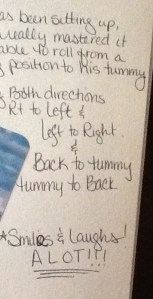 as been sitting up,
mastered it
able to roll from a
position to His tummy
Both directions
Rt to Left &
Left to Right.
&
Back to tummy
tummy to Back
*Smiles & Laughs!
A LOT!!!